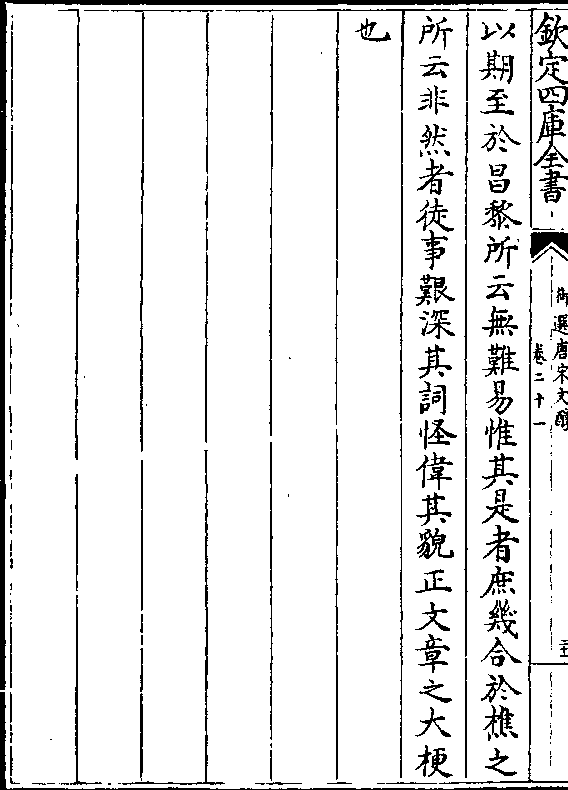 欽定四庫全書
御選唐宋文醇
卷二十一
以期至於昌黎所云無難易惟其是者庶幾合於樵之
所云非然者徒事艱深其詞怪偉其貌正文章之大梗
也